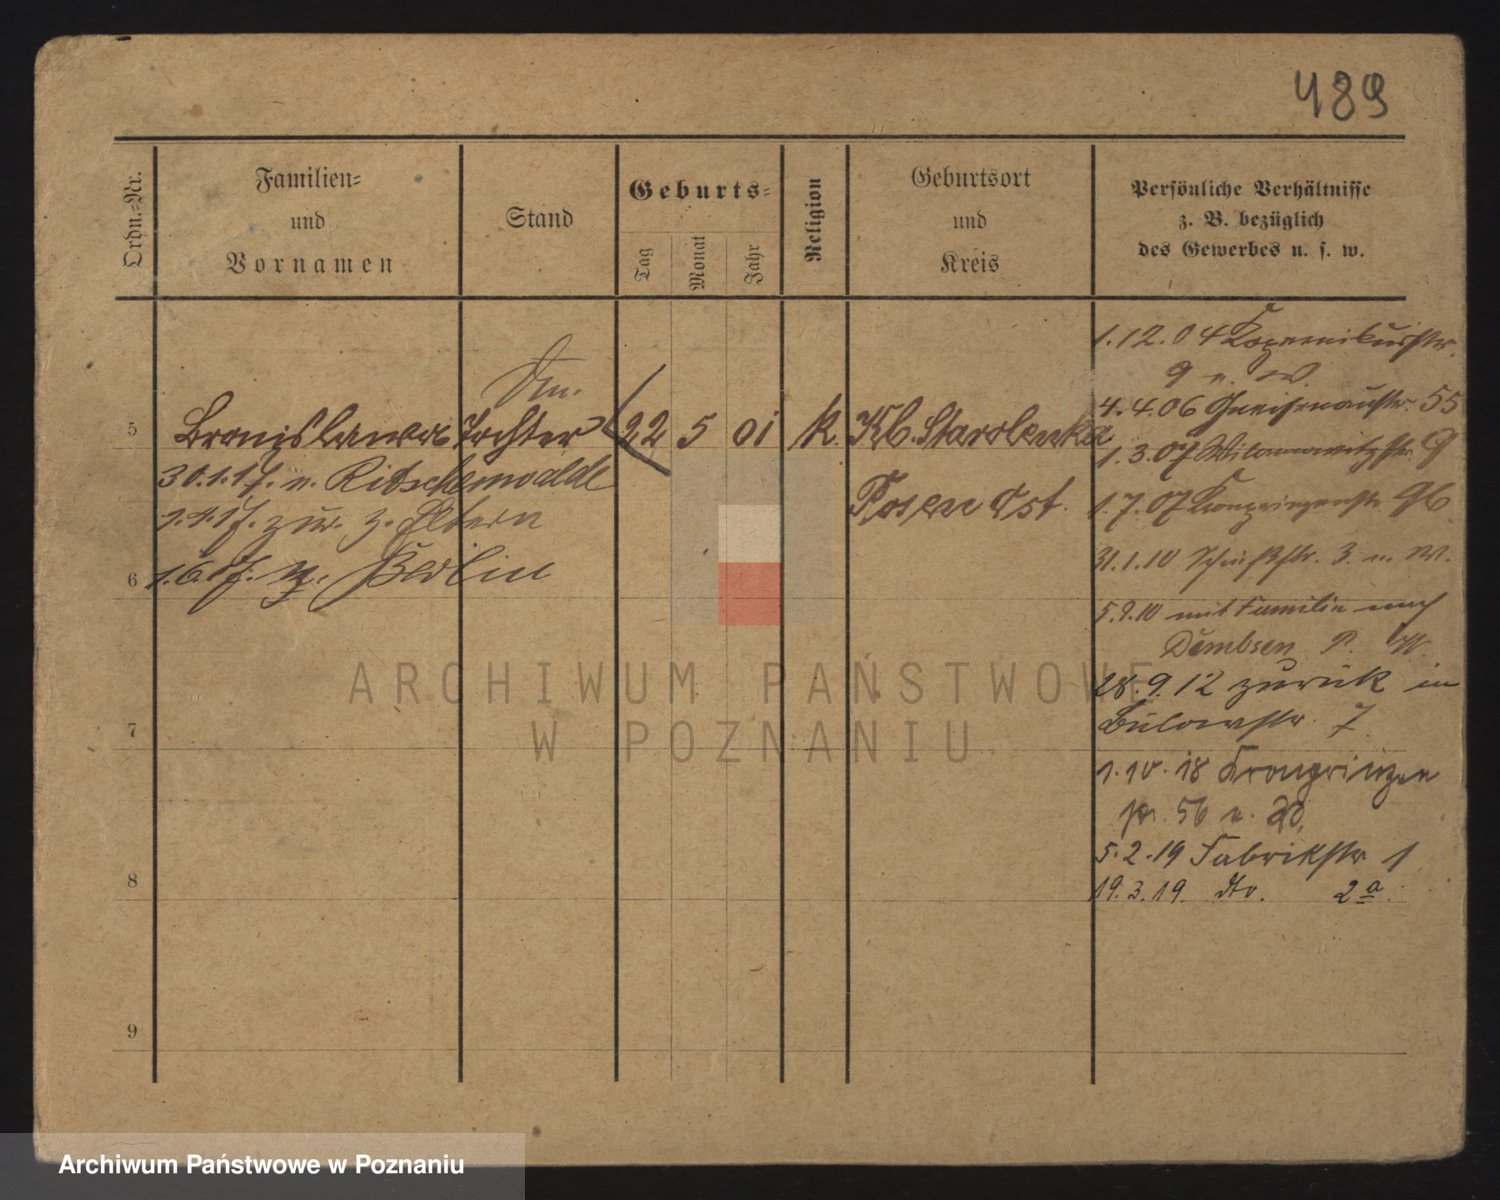 489
Ordn.-Nr.
Familien-
und
Vornamen
Stand
Geburts-
Tag
Monat
Jahr
Religion
Geburtsort
und
Kreis
Persönliche Verhältnisse
z. B. bezüglich
des Gewerbes u. s. w.
5
Bronislawa Tochter 22 5 01 k. Kl. Starolenka
Posen Ost.
30.1.17. n. Ritschenwalde
1.4.17. zur. z. Eltern
6
1.6.17. n. Berlin
7
8
9
1.12.04 Kopernikusstr.
9 n. W.
4.4.06 Gneisenaustr. 55
1.3.07 9
1.7.07 Kronprinzenstr. 96
31.1.10 Schießstr. 3. n. W.
5.9.10 mit Familie nach
Dembsen P. W.
28.9.12 zurück in
Bülowstr. 7
1.10.18 Kronprinzen
str. 56 n.
5.2.19 Fabrikstr 1
19.3.19. dto. 2a.
ARCHIWUM PAŃSTWOWE
W POZNANIU
Archiwum Państwowe w Poznaniu